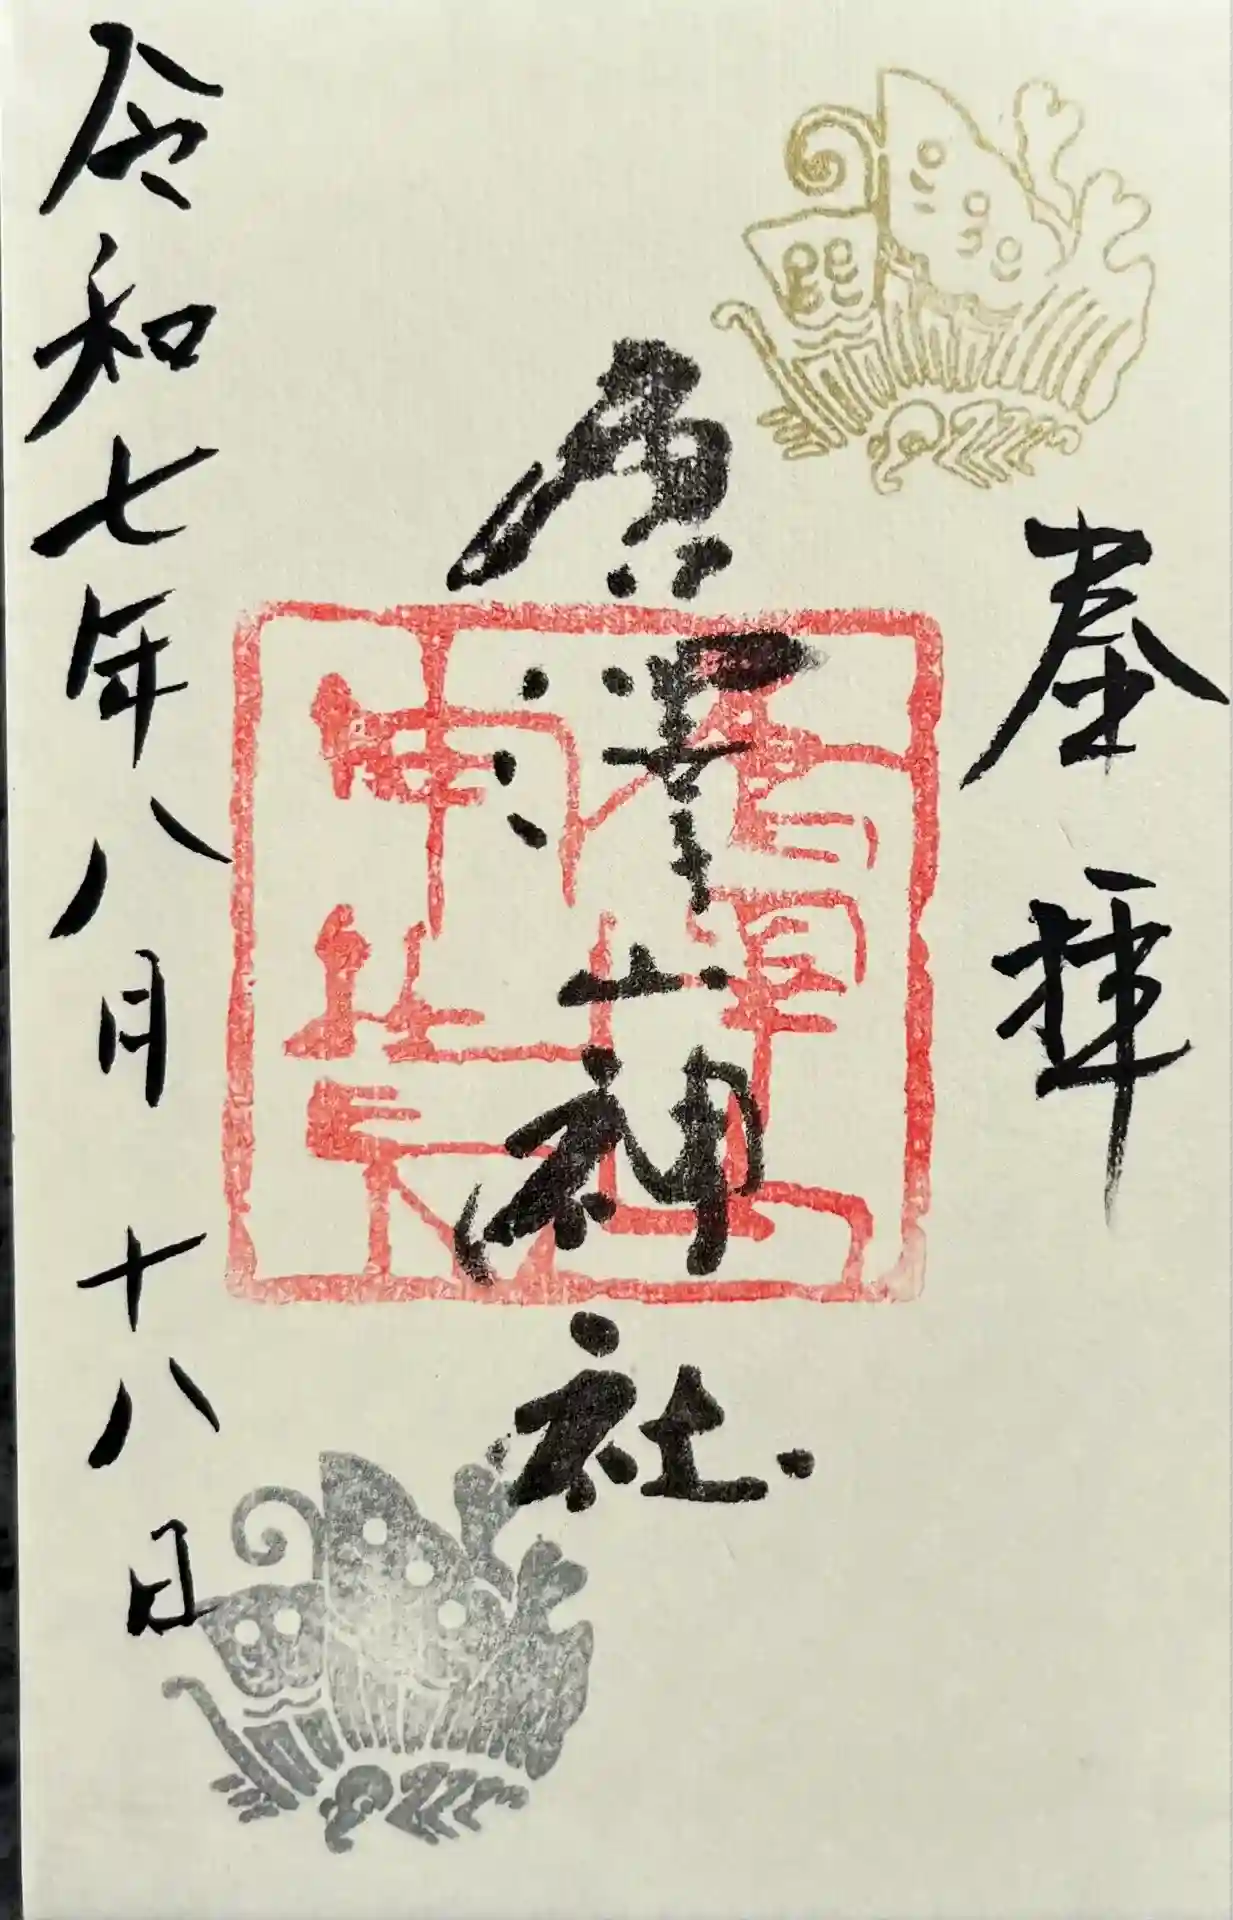 奉拝
唐澤山神社
令和七年八月十八日